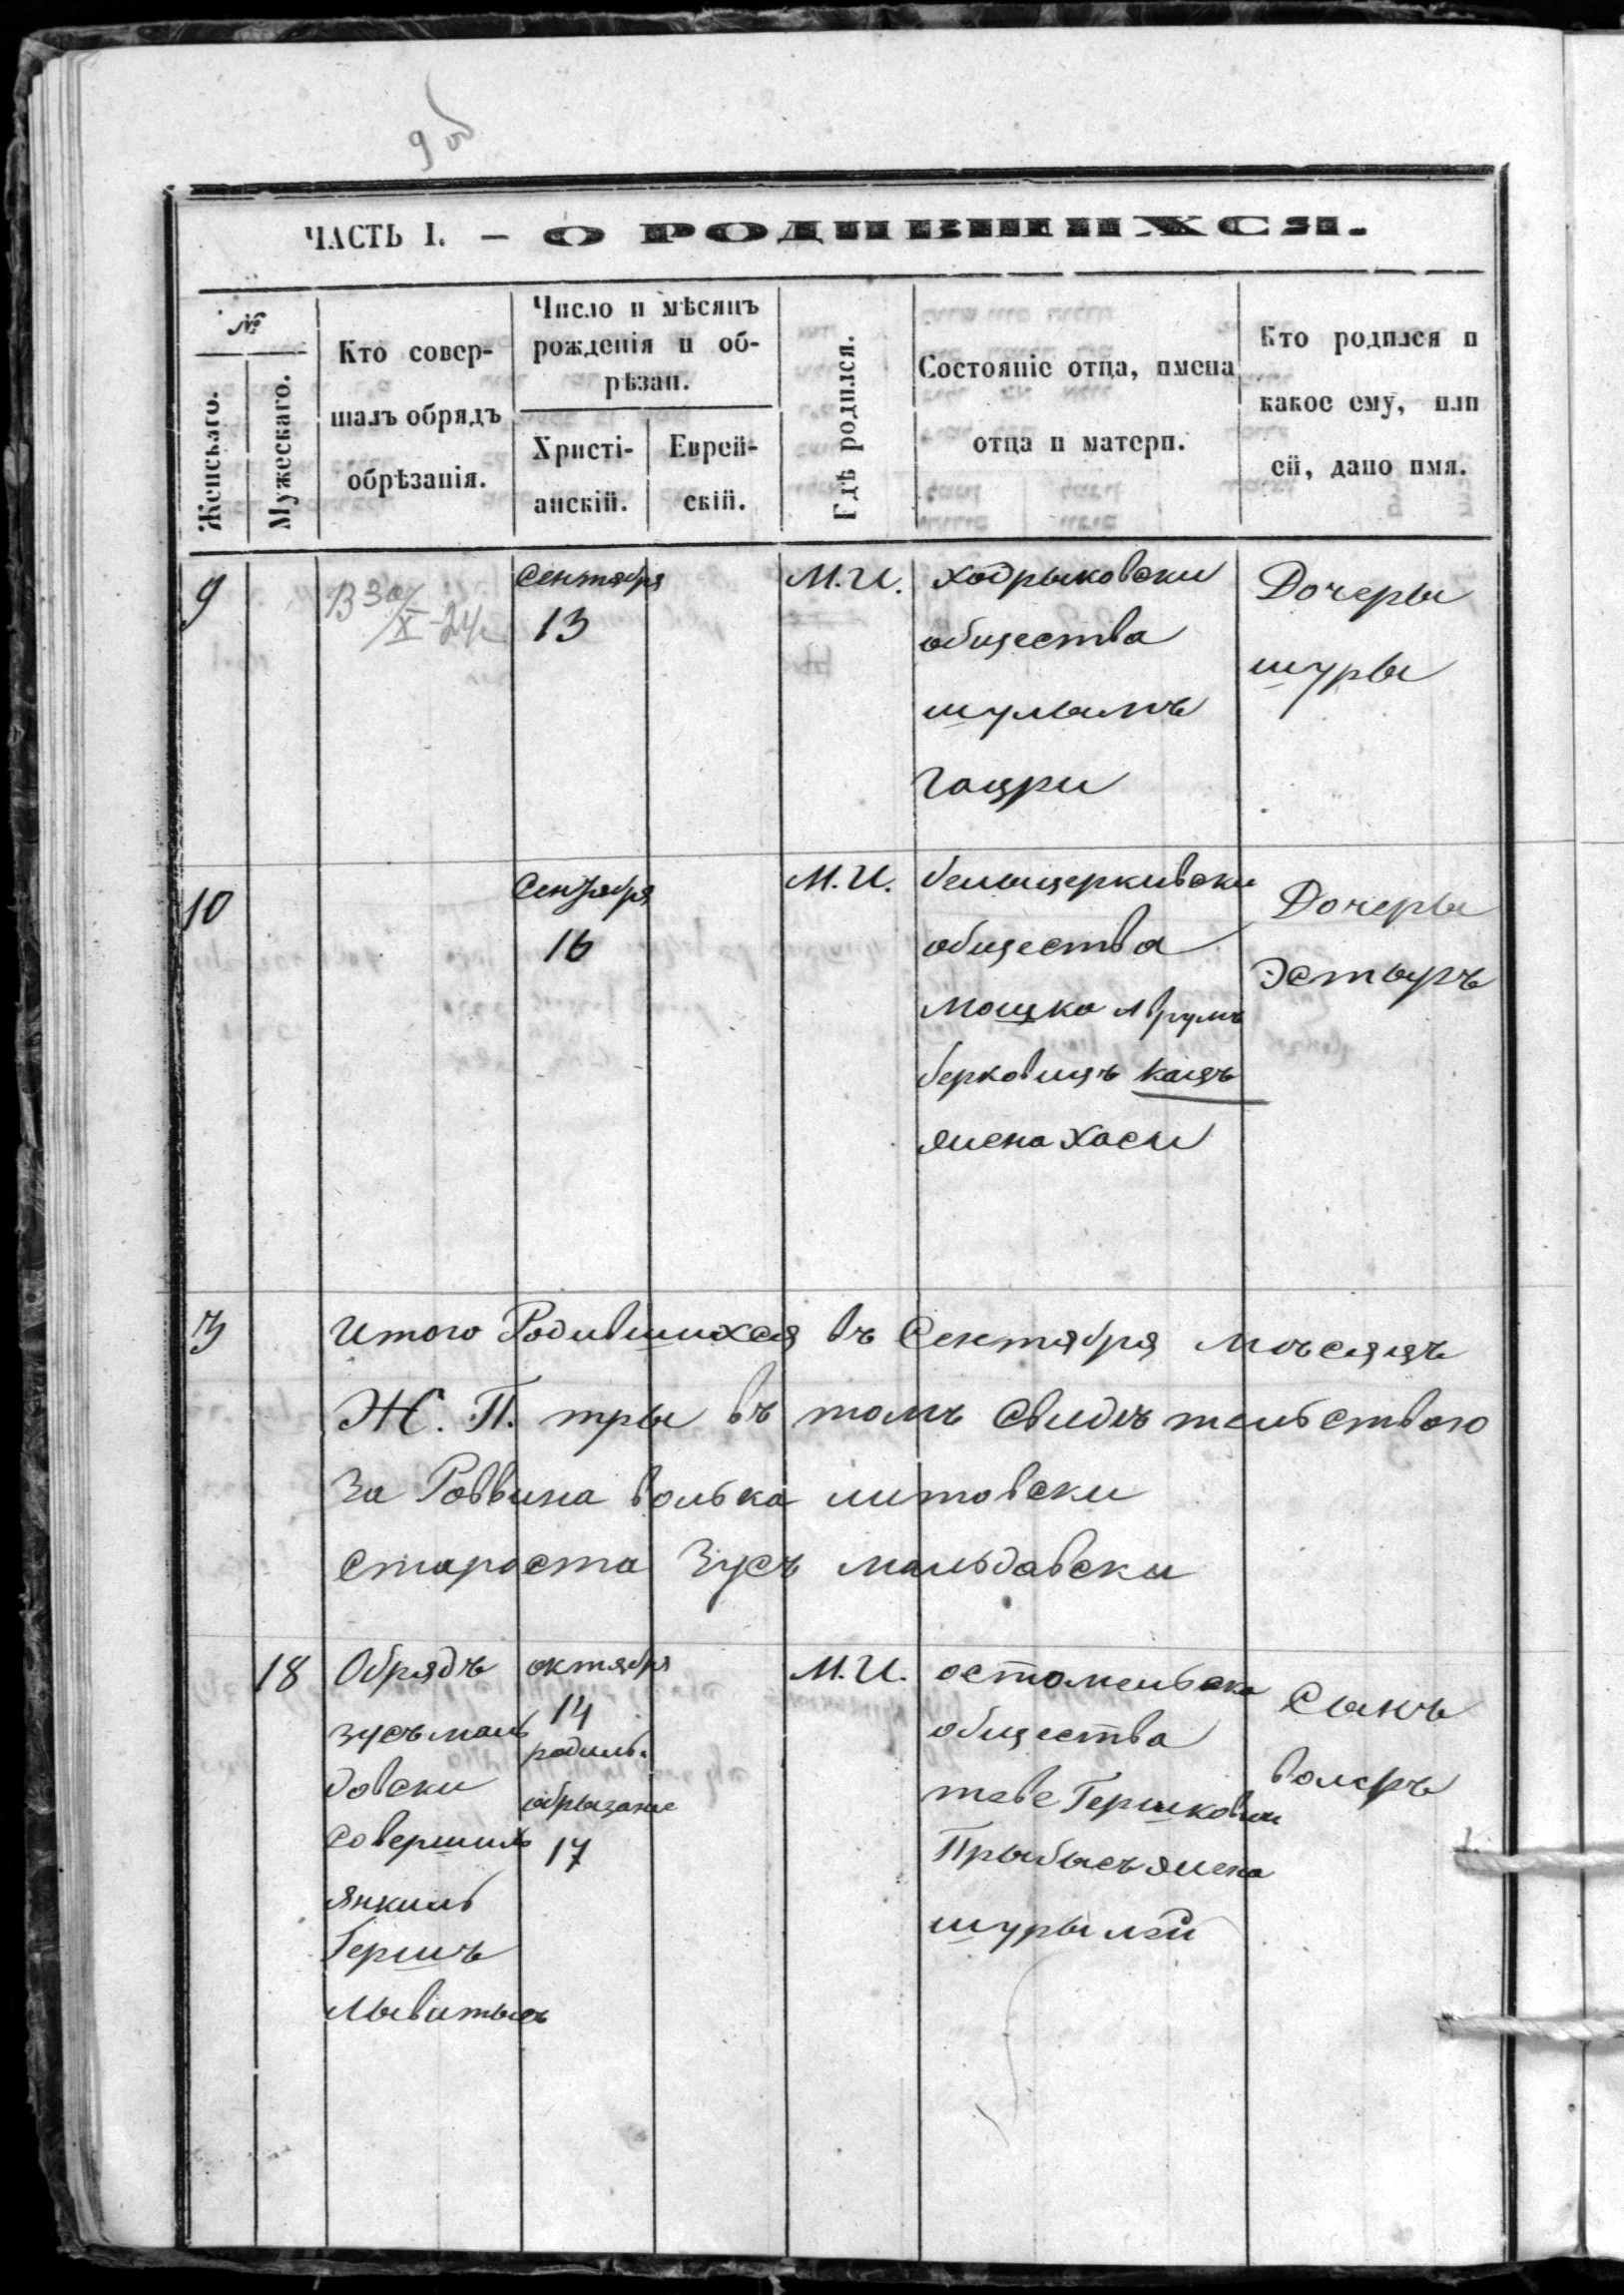 9 об
ЧАСТЬ I. — О РОДИВШИХСЯ.
№
Женскаго.
Мужескаго.
Кто совер-
шалъ обрядъ
обрѣзанія.
Число и мѣсяцъ
рожденія и об-
рѣзан.
Христі-
анскій.
Еврей-
скій.
Гдѣ родился.
Состояніе отца, имена
отца и матери.
Кто родился и
какое ему, или
ей, дано имя.
9
В 30/X-24
Сентября
13
М.И.
ходрыковски
общества
Дочеры
шуры
10
Сентября
16
М.И.
белыцеркивски
общества
мошко Аврумъ
берковичъ кацъ
жена Хаси
Дочеры
Эстыръ
3
Итого Родившихся въ Сентября мъсяцъ
Ж. П. тры въ томъ Свидътельствою
За Раввина волька литовски
Староста Зусъ мальдавски
18
Обрядъ
зусъ маль
довски
Совершилъ
янкиль
Гершъ
октября
14
родилъ.
обрызание
17
М.И.
общества
Гершкович
жена
Сынъ